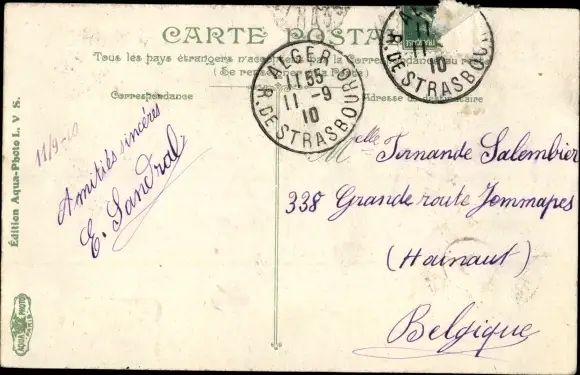 CARTE POSTALE
Tous les pays étrangers n'acceptent pas la Correspondance au recto
(Se renseigner à la Poste)
Correspondance
Adresse du destinataire
ALGER R. DE STRASBOURG
11 55
11 -9
10
R. DE STRASBOURG
11
10
11/9-10
Amitiés sincères
E. Landral
Melle Fernande Salembier
338 Grande route Jemmapes
(Hainaut)
Belgique
Édition Aqua-Photo L. V. S.
AQUA PHOTO
PARIS